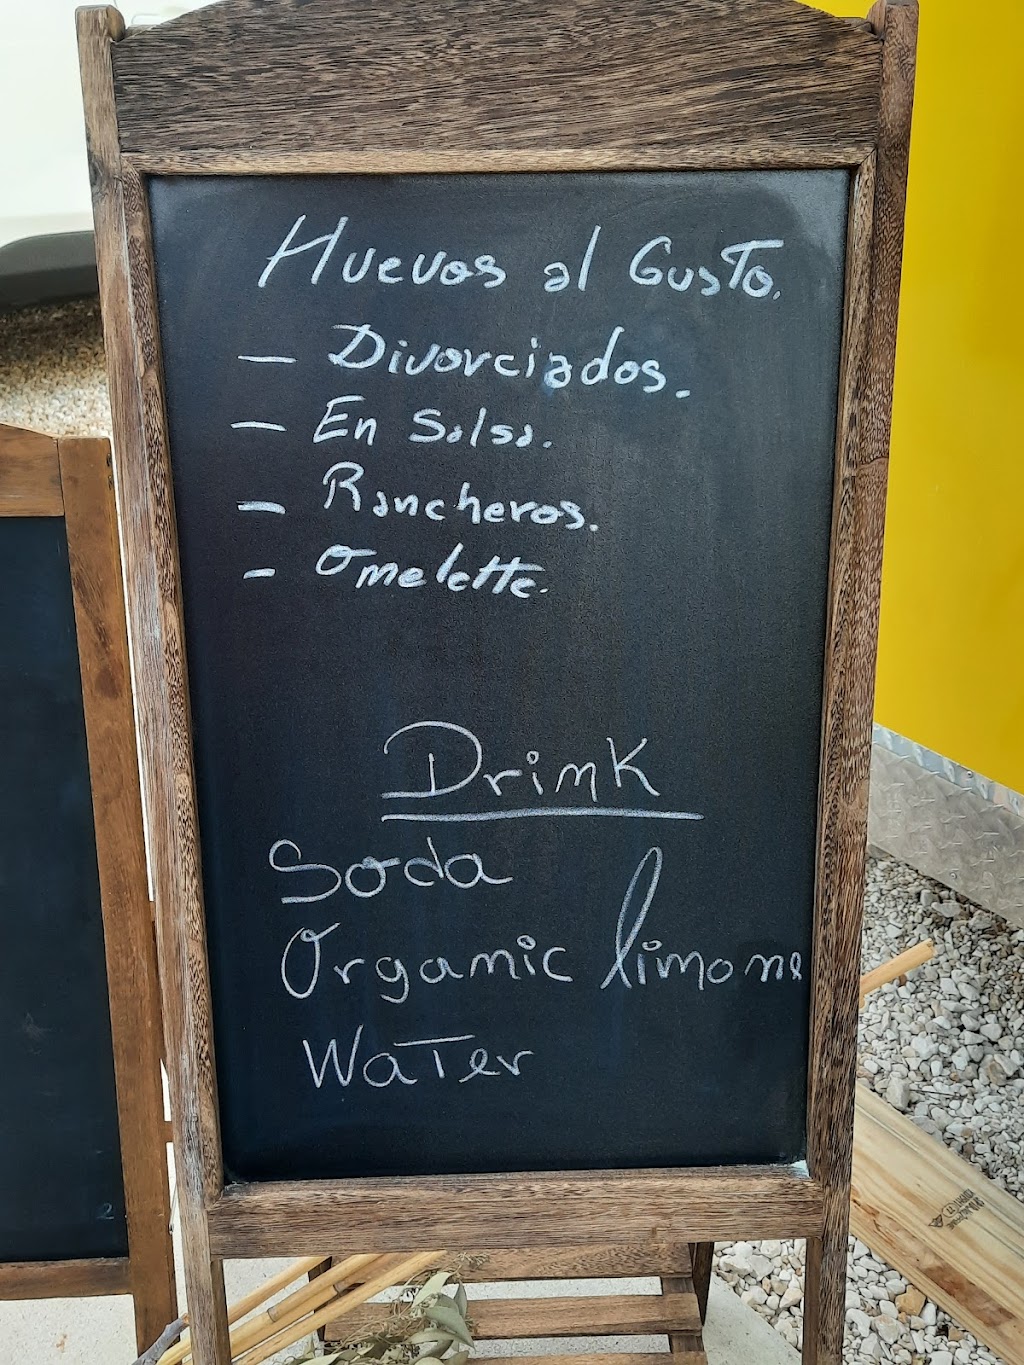 Huevos al Gusto.
- Divorciados.
- En Salsa.
- Rancheros.
- Omelette.
Drink
Soda
Organic limone
Water